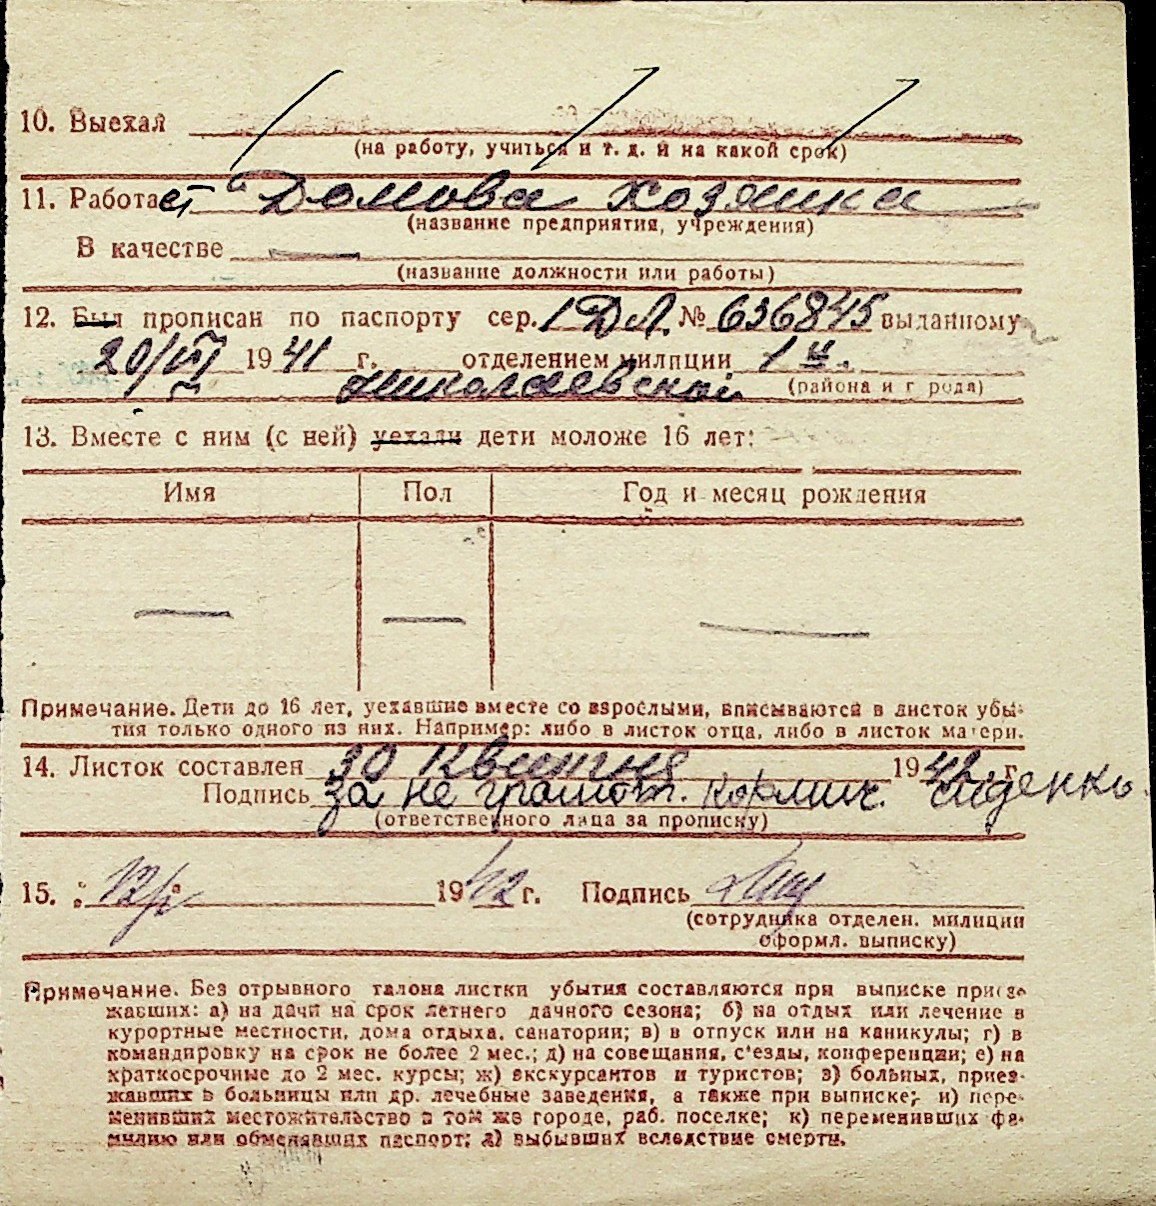 10. Выехал
(на работу, учиться и т. д. и на какой срок)
11. Работает Домова хозяика
(название предприятия, учреждения)
В качестве —
(название должности или работы)
12. Был прописан по паспорту сер. 1 ДЛ № 636845 выданному
20/VI 1941 г. отделением милиции 1й.
Николаевской (района и г рода)
13. Вместе с ним (с ней) уехали дети моложе 16 лет:
Имя Пол Год и месяц рождения
— — —
Примечание. Дети до 16 лет, уехавшие вместе со взрослыми, вписываются в листок убы-
тия только одного из них. Например: либо в листок отца, либо в листок матери.
14. Листок составлен 30 Квитня 1942 г.
Подпись за не грамот.
(ответственного лица за прописку)
15. 1942 г. Подпись
(сотрудника отделен. милиции
оформл. выписку)
Примечание. Без отрывного талона листки убытия составляются при выписке приез-
жавших: а) на дачи на срок летнего дачного сезона; б) на отдых или лечение в
курортные местности, дома отдыха, санатории; в) в отпуск или на каникулы; г) в
командировку на срок не более 2 мес.; д) на совещания, с'езды, конференции; е) на
краткосрочные до 2 мес. курсы; ж) экскурсантов и туристов; з) больных, приез-
жавших в больницы или др. лечебные заведения, а также при выписке; и) пере-
менивших местожительство в том же городе, раб. поселке; к) переменивших фа-
милию или обменявших паспорт; л) выбывших вследствие смерти.